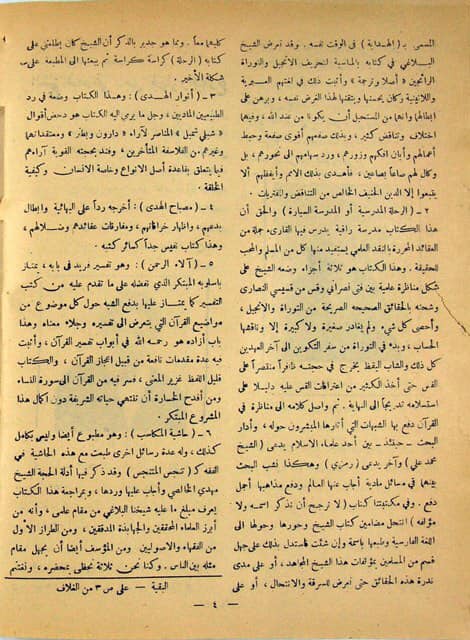 المسمى بـ (الهداية) في الوقت نفسه . وقد تعرض الشيخ
البلاغي في كتابه بالمناسبة لتحريف الانجيل والتوراة
الرائجين « أصلا وترجمة » وأثبت ذلك في لغتهم العبرية
واللاتونية وكان يحسنها ويتقنها لهذا الغرض نفسه ، وبرهن على
إبطالها وانهما من المستحيل أن يكونا من عند الله ، وفيهما
اختلاف وتناقض كثير ، وبذلك صفعهم أقوى صفعة وحبط
أعمالهم وأبان افكهم وزورهم ، ورد سهامهم الى نحورهم ، بل
وكال لهم صاعاً بصاعين ، فأهدى بذلك الامم وأيقظهم ألا
يتبعوا إلا الدين الحنيف الخالص من التناقض والمفتريات .
٢ ــ ( الرحلة المدرسية أو المدرسة السيارة ) والحق أن
هذا الكتاب مدرسة راقية يدرس فيها القارىء جملة من
العقائد المحررة بالنقد العلمي يستفيد منها كل من المسلم والمحب
للحقيقة . وهذا الكتاب هو ثلاثة أجزاء وضعه الشيخ على
شكل مناظرة علمية بين فتى نصراني وقس من قسيسي النصارى
وشحنه بالحقائق الصحيحة الصريحة من التوراة والانجيل ،
وأحصى كل شيء ولم يغادر صغيرة ولا كبيرة إلا وناقشها
الحساب ، وبدء في التوراة من سفر التكوين الى آخر العهدين
كل ذلك والشاب اليقظ يخرج في حجته ظافراً منتصراً على
القس حتى أخذ الكثير من اعترافات القس عليه دليلا على
استسلامه تدريجاً الى النهاية . ثم واصل كلامه الى مناظرة في
القرآن دفع بها الشبهات التي أثارها المبشرون حوله ، وأدار
البحث ــ حينئذ ــ بين أحد علماء الاسلام يدعى ( الشيخ
محمد علي ) وآخر يدعى ( رمزي ) وهكذا نشب البحث
بينهما في مسائل مادية أجاب عنها العالم ودفع مذاهبها أجمل
دفع . وفي مكتبتنا كتاب ( لا ترجيح أن نذكر اسمه ولا
مؤلفه ) انتحل مضامين كتاب الشيخ وحورها وحولها الى
اللغة الفارسية وطبعها باسمه وإن شئت فاستدل بذلك على جهل
قسم من المسلمين بمؤلفات هذا الشيخ المجاهد ، أو على مدى
ندرة هذه الحقائق حتى تعرض للسرقة والانتحال ، أو على
كليهما معاً . ومما هو جدير بالذكر أن الشيخ كان يطلعني على
كتابه ( الرحلة ) كراسة كراسة ثم يبعثها الى المطبعة على
شكلة الأخير .
٣ ــ ( أنوار الهدى ) : وهذا الكتاب وضعة في رد
الطبيعيين الماديين ، وجل ما يرمى اليه الكتاب هو دحض أقوال
« شبلي شميل » المناصر لآراء « دارون وبخنر » ومعتقداتهما
وغيرهم من الفلاسفة المتأخرين ، وفند بحجته القوية آراءهم
فيما يتعلق بقاعدة أصل الانواع وخاصة الانسان وكيفية
الخلقة .
٤ ــ ( مصباح الهدى ) : أخرجه رداً على البهائية وابطال
بدعهم ، واظهار خرافاتهم ، ومفارقات عقائدهم وضلالهم ،
وهذا كتاب نفيس جداً كسائر كتبه .
٥ ــ ( آلاء الرحمن ) : وهو تفسير فريد في بابه ، يمتاز
باسلوبه المبتكر الذي نفضله على ما تقدم عليه من كتب
التفسير كما يمتاز عليها بدفع الشبه حول كل موضوع من
مواضيع القرآن التي يتعرض الى تفسيره وجلاء معناه وهذا
باب أزاده هو رحمه الله في أبواب تفسير القرآن ، وأثبت
فيه عدة مقدمات نافعة من قبيل اعجاز القرآن ، والكتاب
قليل اللفظ غزير المعنى ، فسر فيه من القرآن الى سورة النساء
ومن أفدح الخسارة أن تنتهي حياته الشريفة دون اكمال هذا
المشروع المبتكر .
٦ ــ ( حاشية المكاسب ) : وهو مطبوع أيضا وليس بكامل
كذلك ، وله عدة رسائل اخرى طبعت مع هذه الحاشية في
الفقه كـ ( تنجس المتنجس ) وقد ذكر فيها أدلة الحجة الشيخ
مهدي الخالصي وأجاب عليها وردها ، وبمراجعة هذا الكتاب
يعرف مبلغ ما عليه شيخنا البلاغي من مقام علمي ، وأنه من
أبرز العلماء المحققين والجهابذة المدققين ، ومن الطراز الأول
من الفقهاء والاصوليين . ومن المؤسف أيضا أن يجهل مقام
مثله بين الناس . وكنا نحن ثلاثة نحظى بمحضره ، ونغتنم
البقية ــ على ص ٣ من الغلاف
ــ ٤ ــ